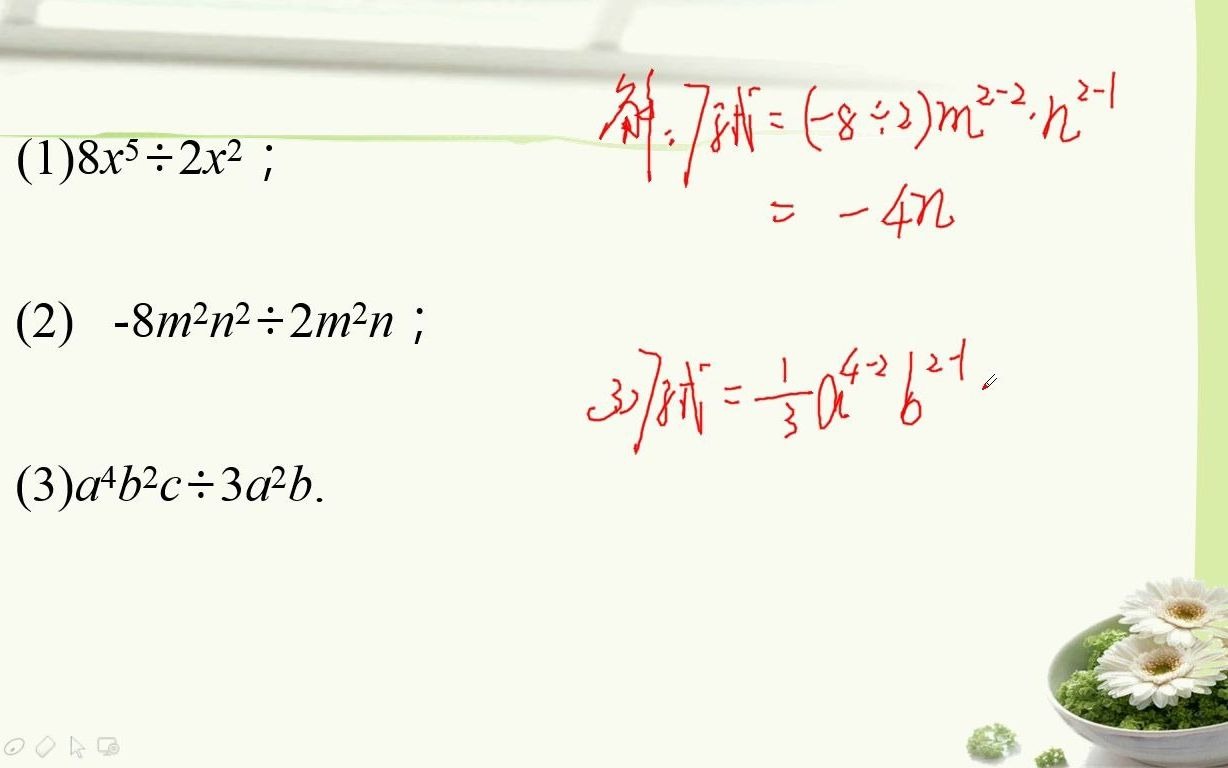 (1)8x⁵÷2x²；
(2) -8m²n²÷2m²n；
(3)a⁴b²c÷3a²b.
解:原式=(-8÷2)m²⁻²·n²⁻¹
= -4n
(3)原式=1/3 a⁴⁻²b²⁻¹